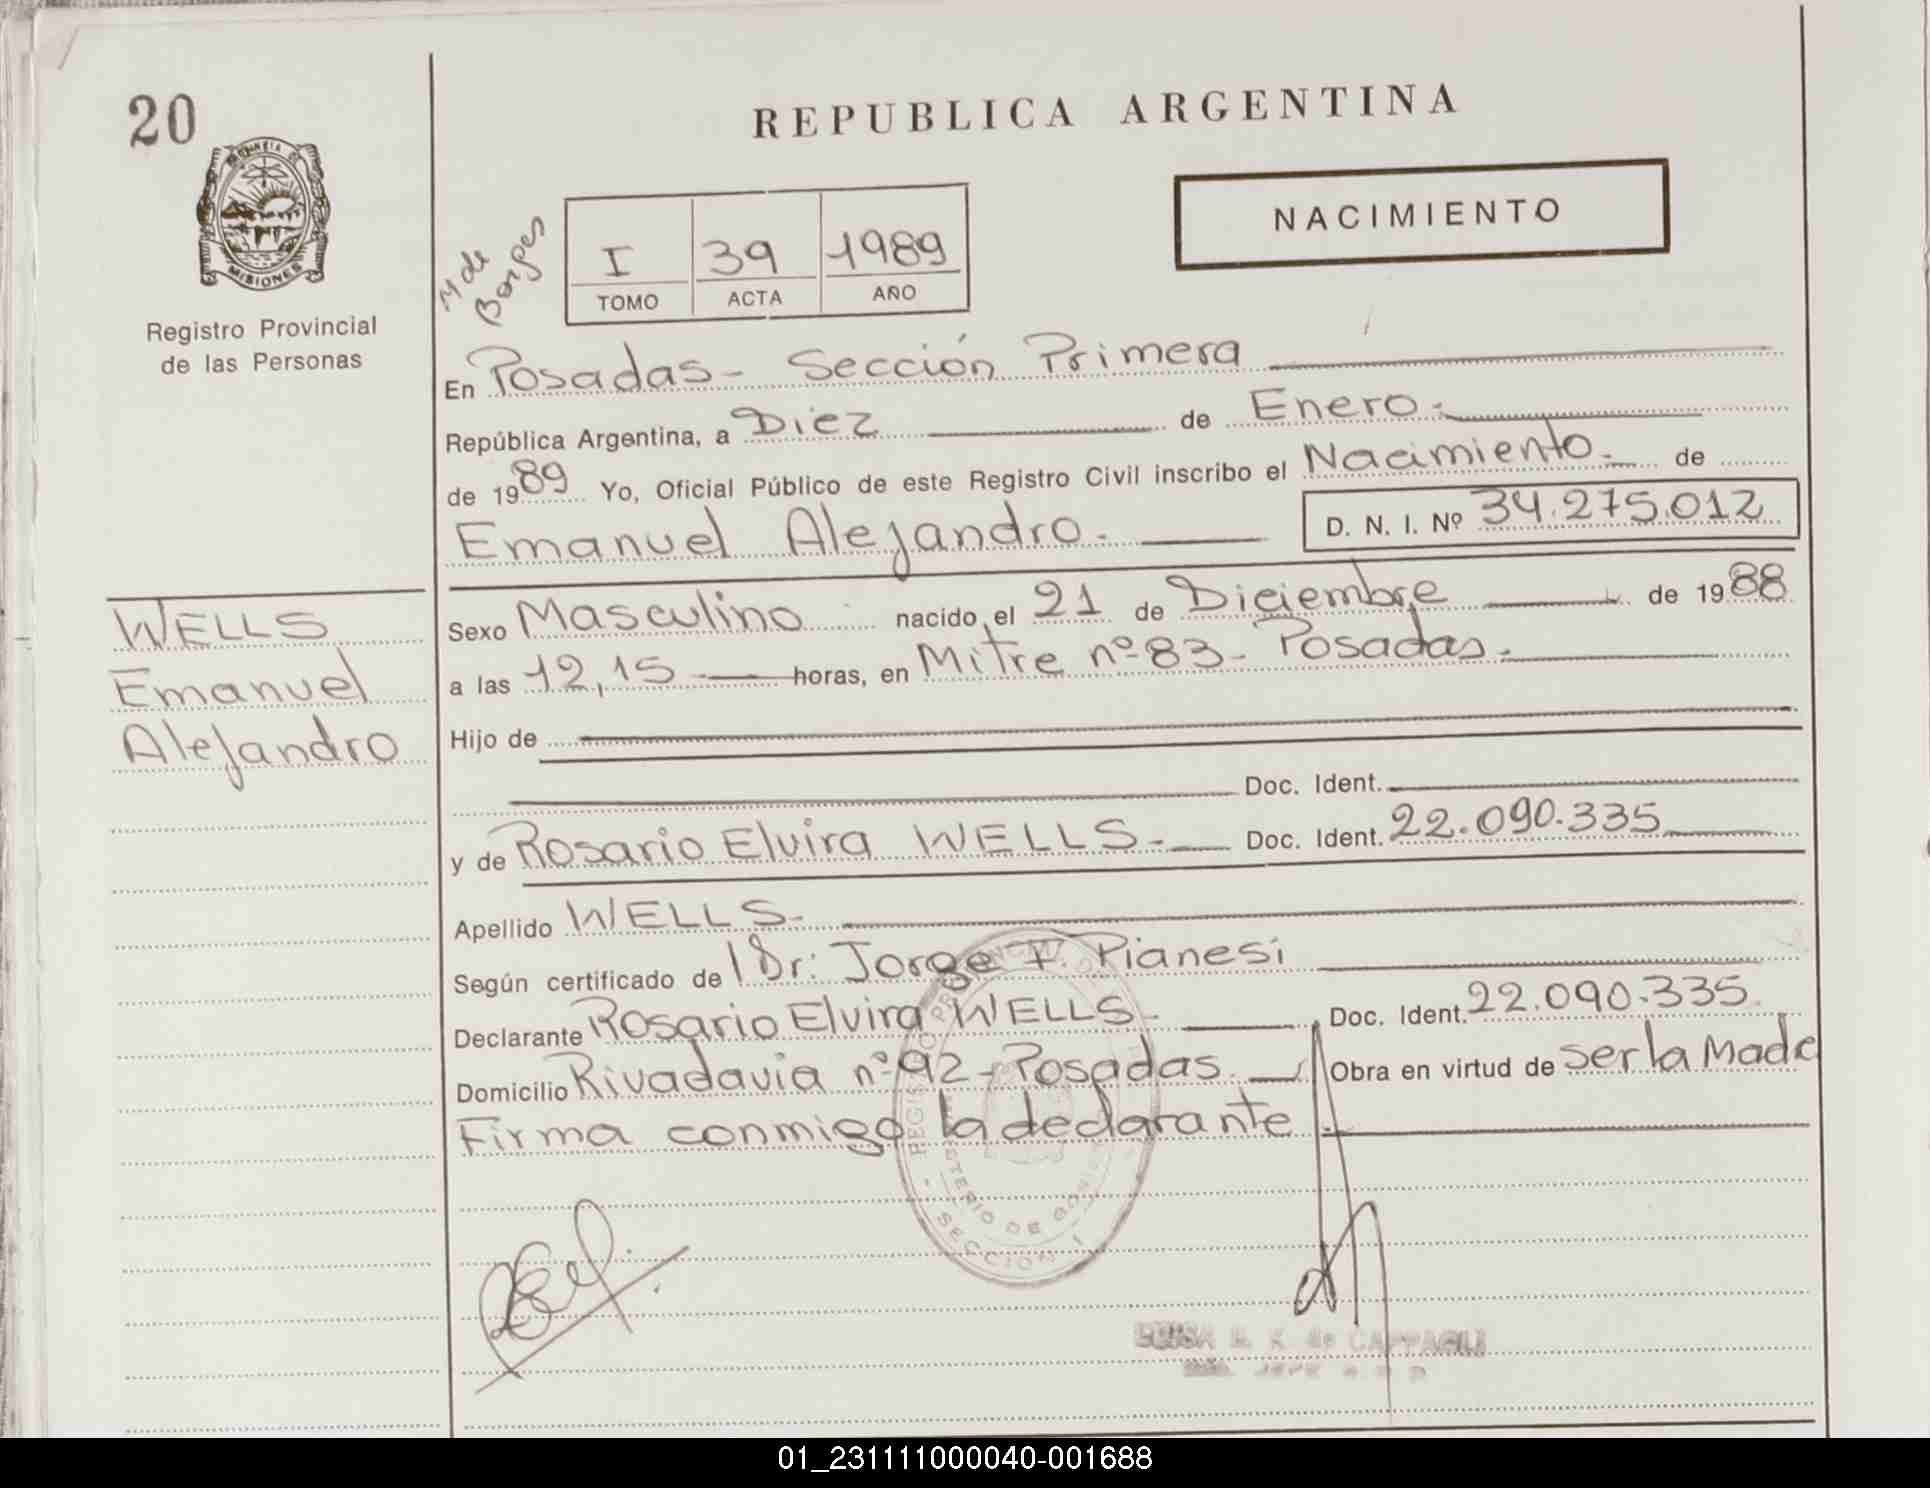 20
PROVINCIA DE
MISIONES
Registro Provincial
de las Personas
WELLS
Emanuel
Alejandro
REPUBLICA ARGENTINA
NACIMIENTO
Borges
I 39 1989
TOMO ACTA AÑO
En Posadas- Sección Primera
República Argentina, a Diez de Enero.
de 1989 Yo, Oficial Público de este Registro Civil inscribo el Nacimiento. de
Emanuel Alejandro. D. N. I. Nº 34.275.012
Sexo Masculino nacido el 21 de Diciembre de 1988
a las 12,15 horas, en Mitre nº 83- Posadas.
Hijo de
Doc. Ident.
y de Rosario Elvira WELLS. Doc. Ident. 22.090.335
Apellido WELLS-
Según certificado de Dr: Jorge F. Pianesi
Declarante Rosario Elvira WELLS- Doc. Ident. 22.090.335
Domicilio Rivadavia nº 92- Posadas. Obra en virtud de ser la Madre
Firma conmigo la declarante
SECCION 1
de CAPPAGLI
01_231111000040-001688